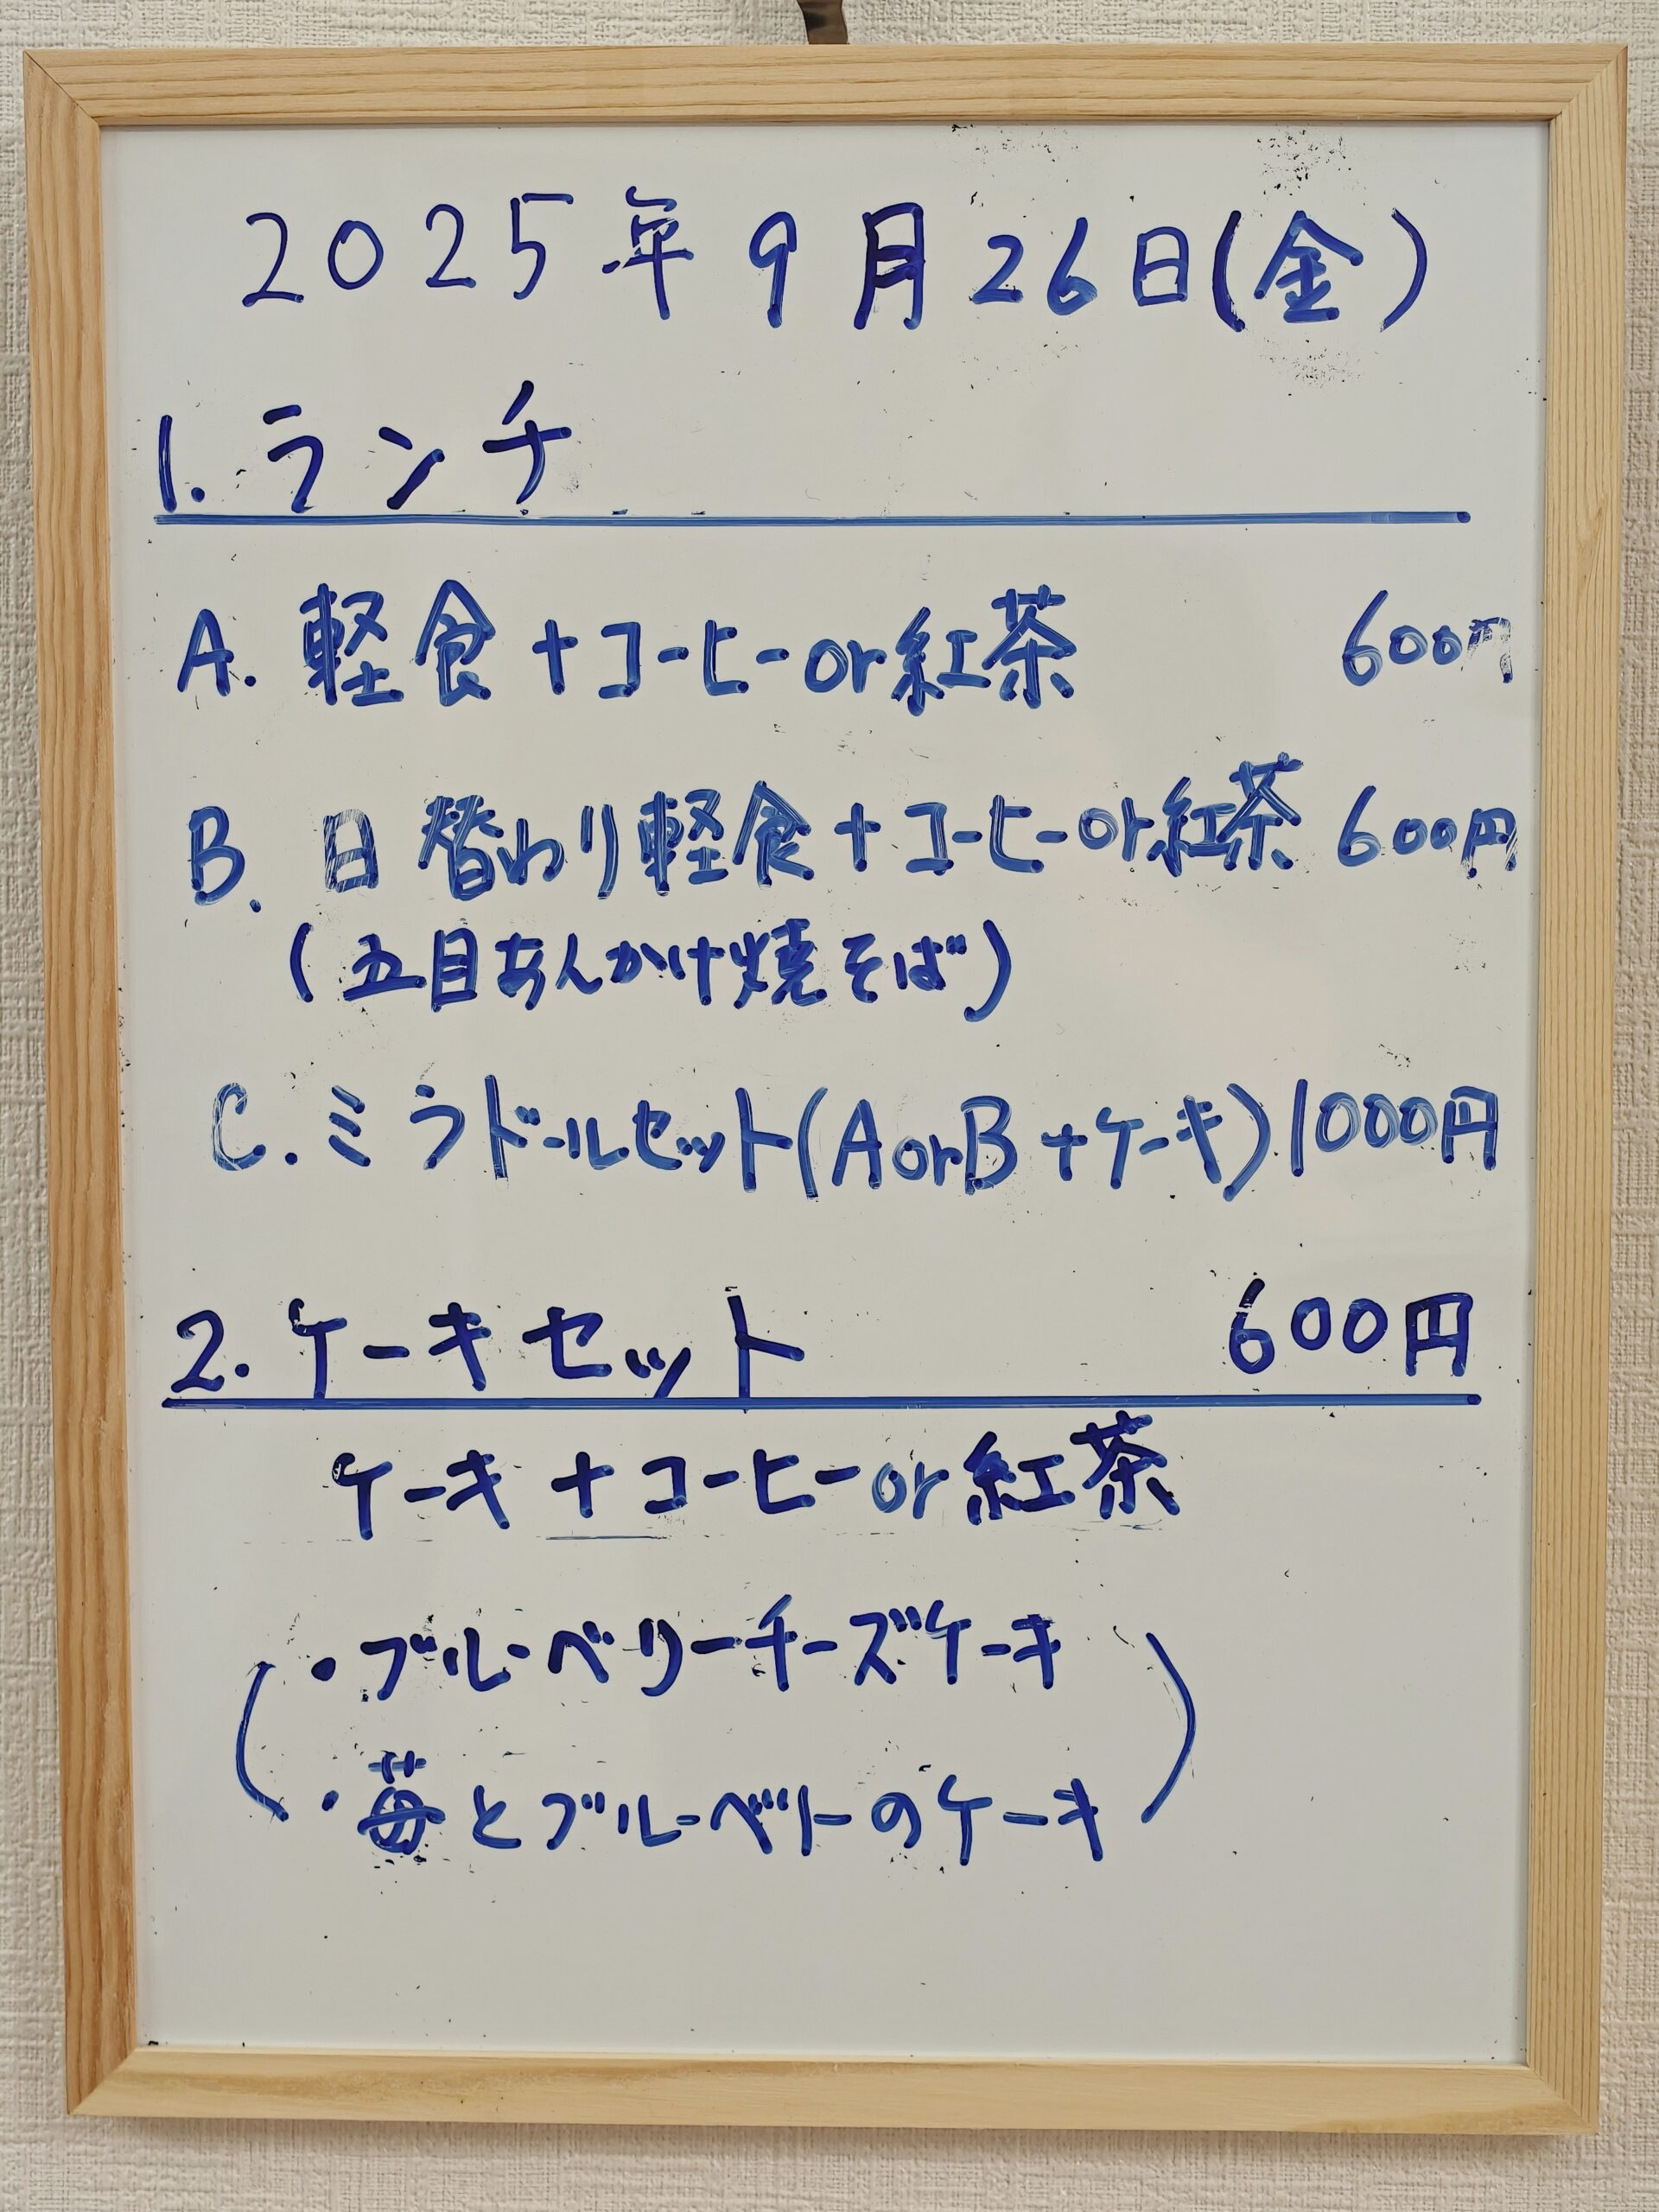 2025年9月26日(金)
1. ランチ
A. 軽食+コーヒーor紅茶 600円
B. 日替わり軽食+コーヒーor紅茶 600円
(五目あんかけ焼そば)
C. ミラドールセット(AorB+ケーキ) 1000円
2. ケーキセット 600円
ケーキ+コーヒーor紅茶
・ブルーベリーチーズケーキ
・苺とブルーベリーのケーキ